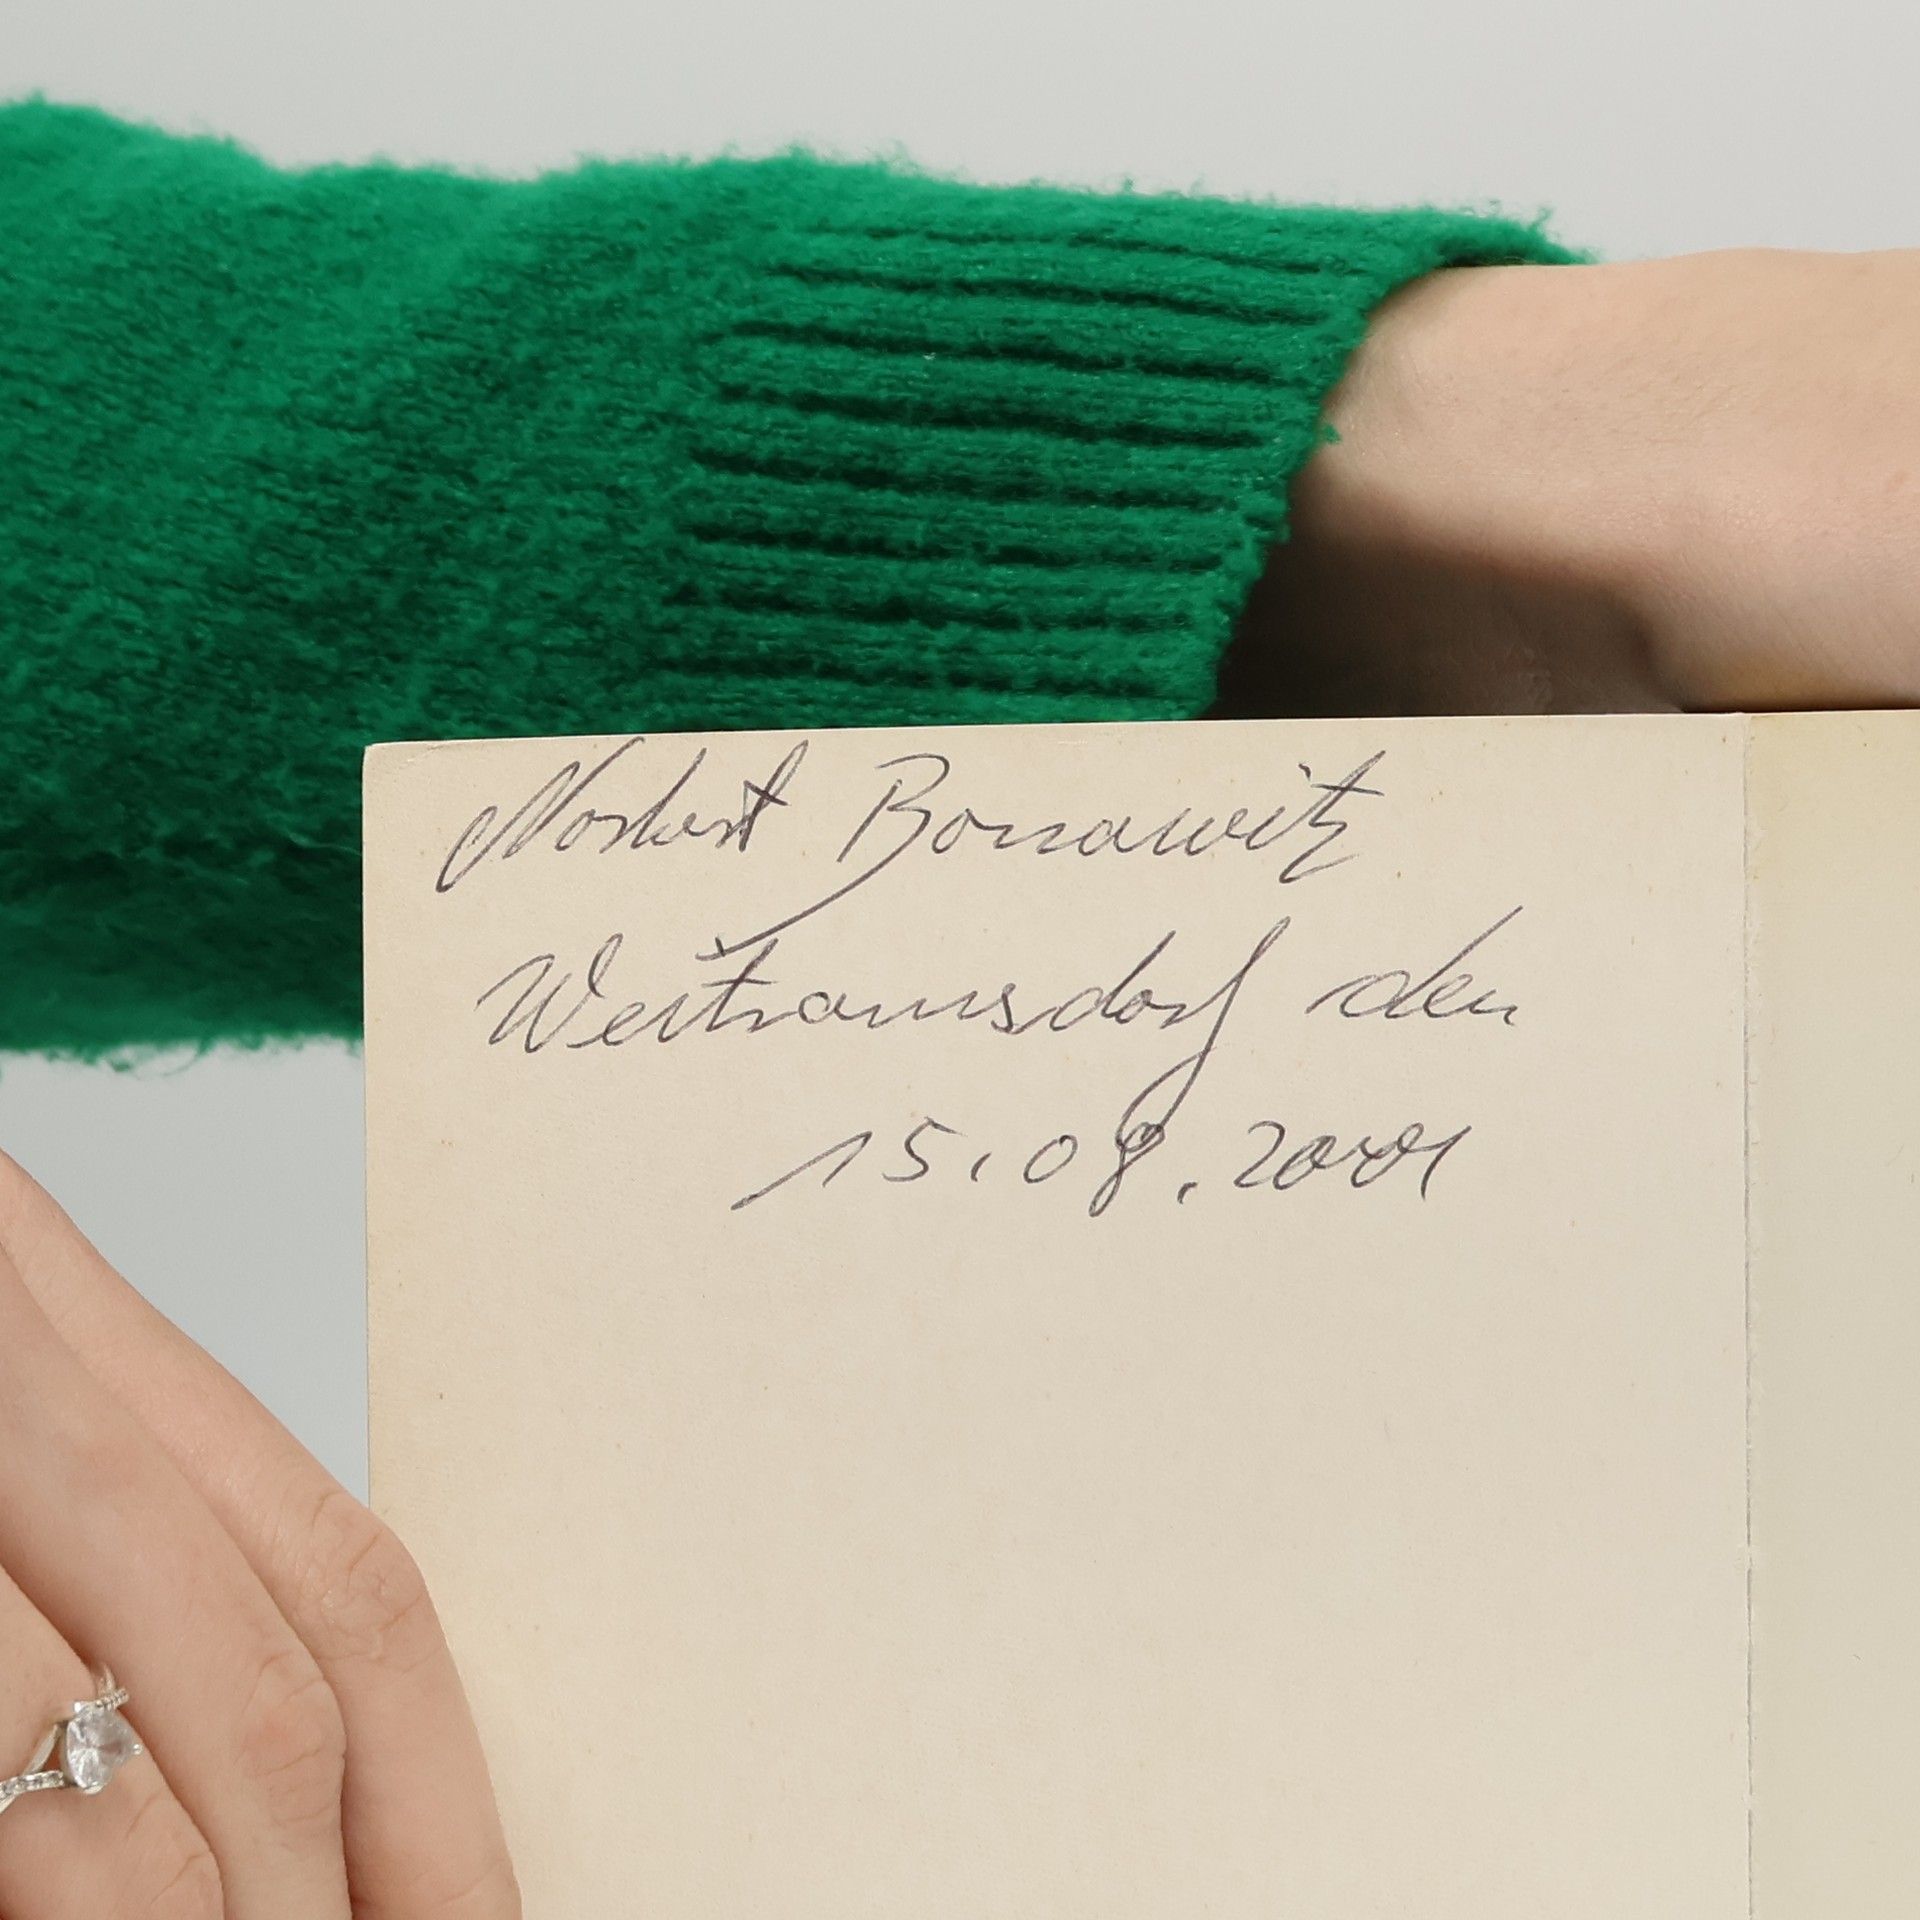 Norbert Bonawitz
Weitramsdorf den
15.08.2001